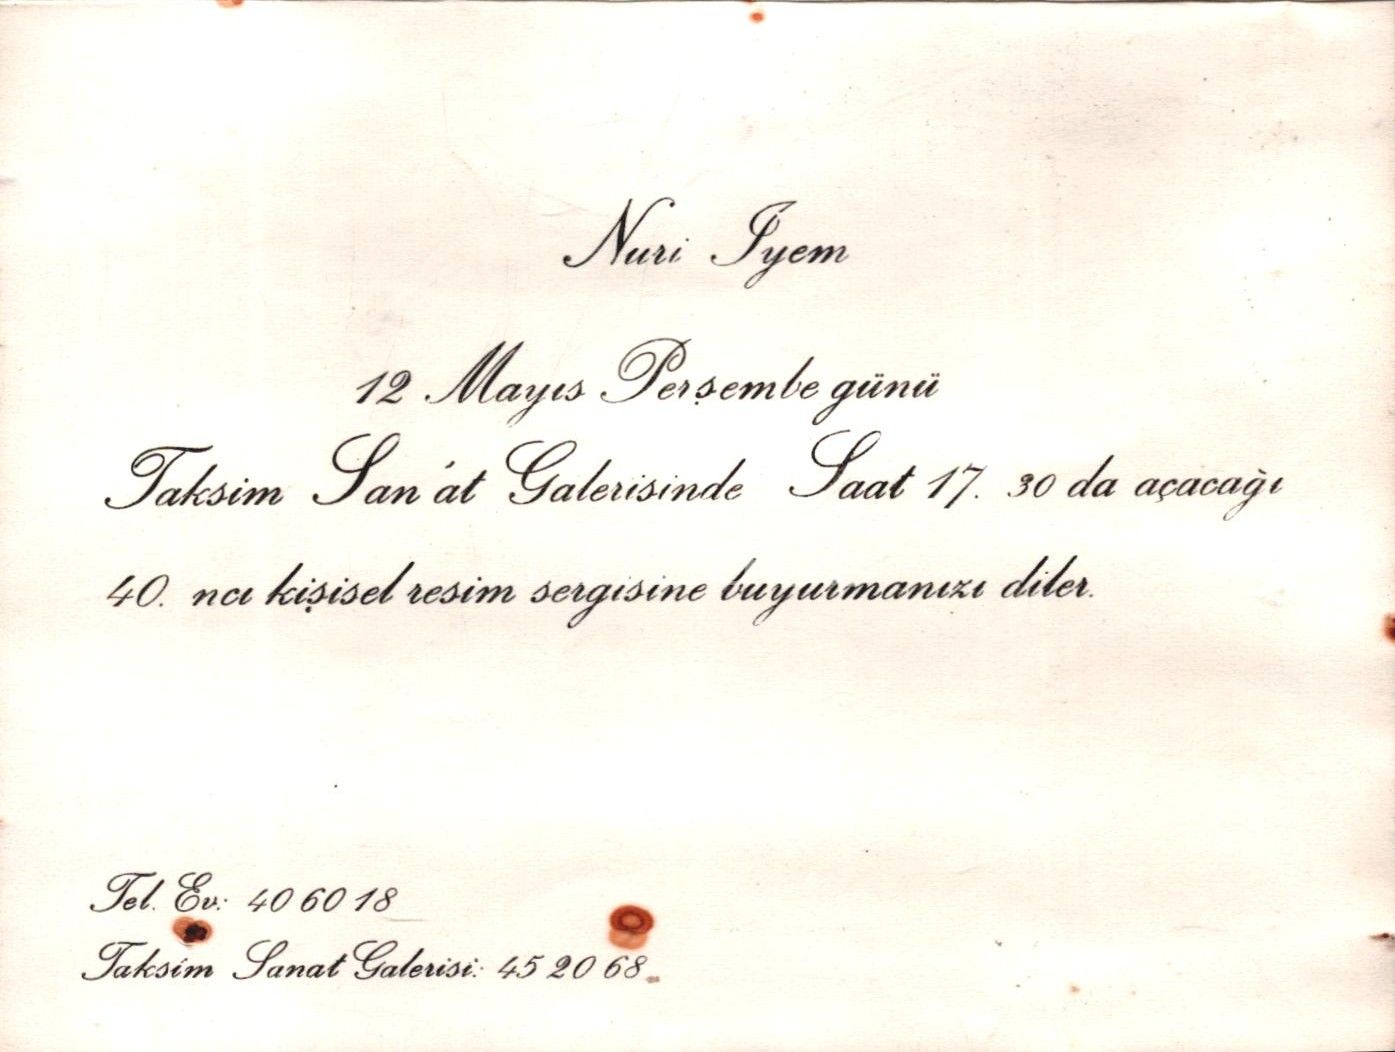 Nuri İyem
12 Mayıs Perşembe günü
Taksim San'at Galerisinde Saat 17.30 da açacağı
40. ncı kişisel resim sergisine buyurmanızı diler.
Tel. Ev: 40 60 18
Taksim Sanat Galerisi: 45 20 68